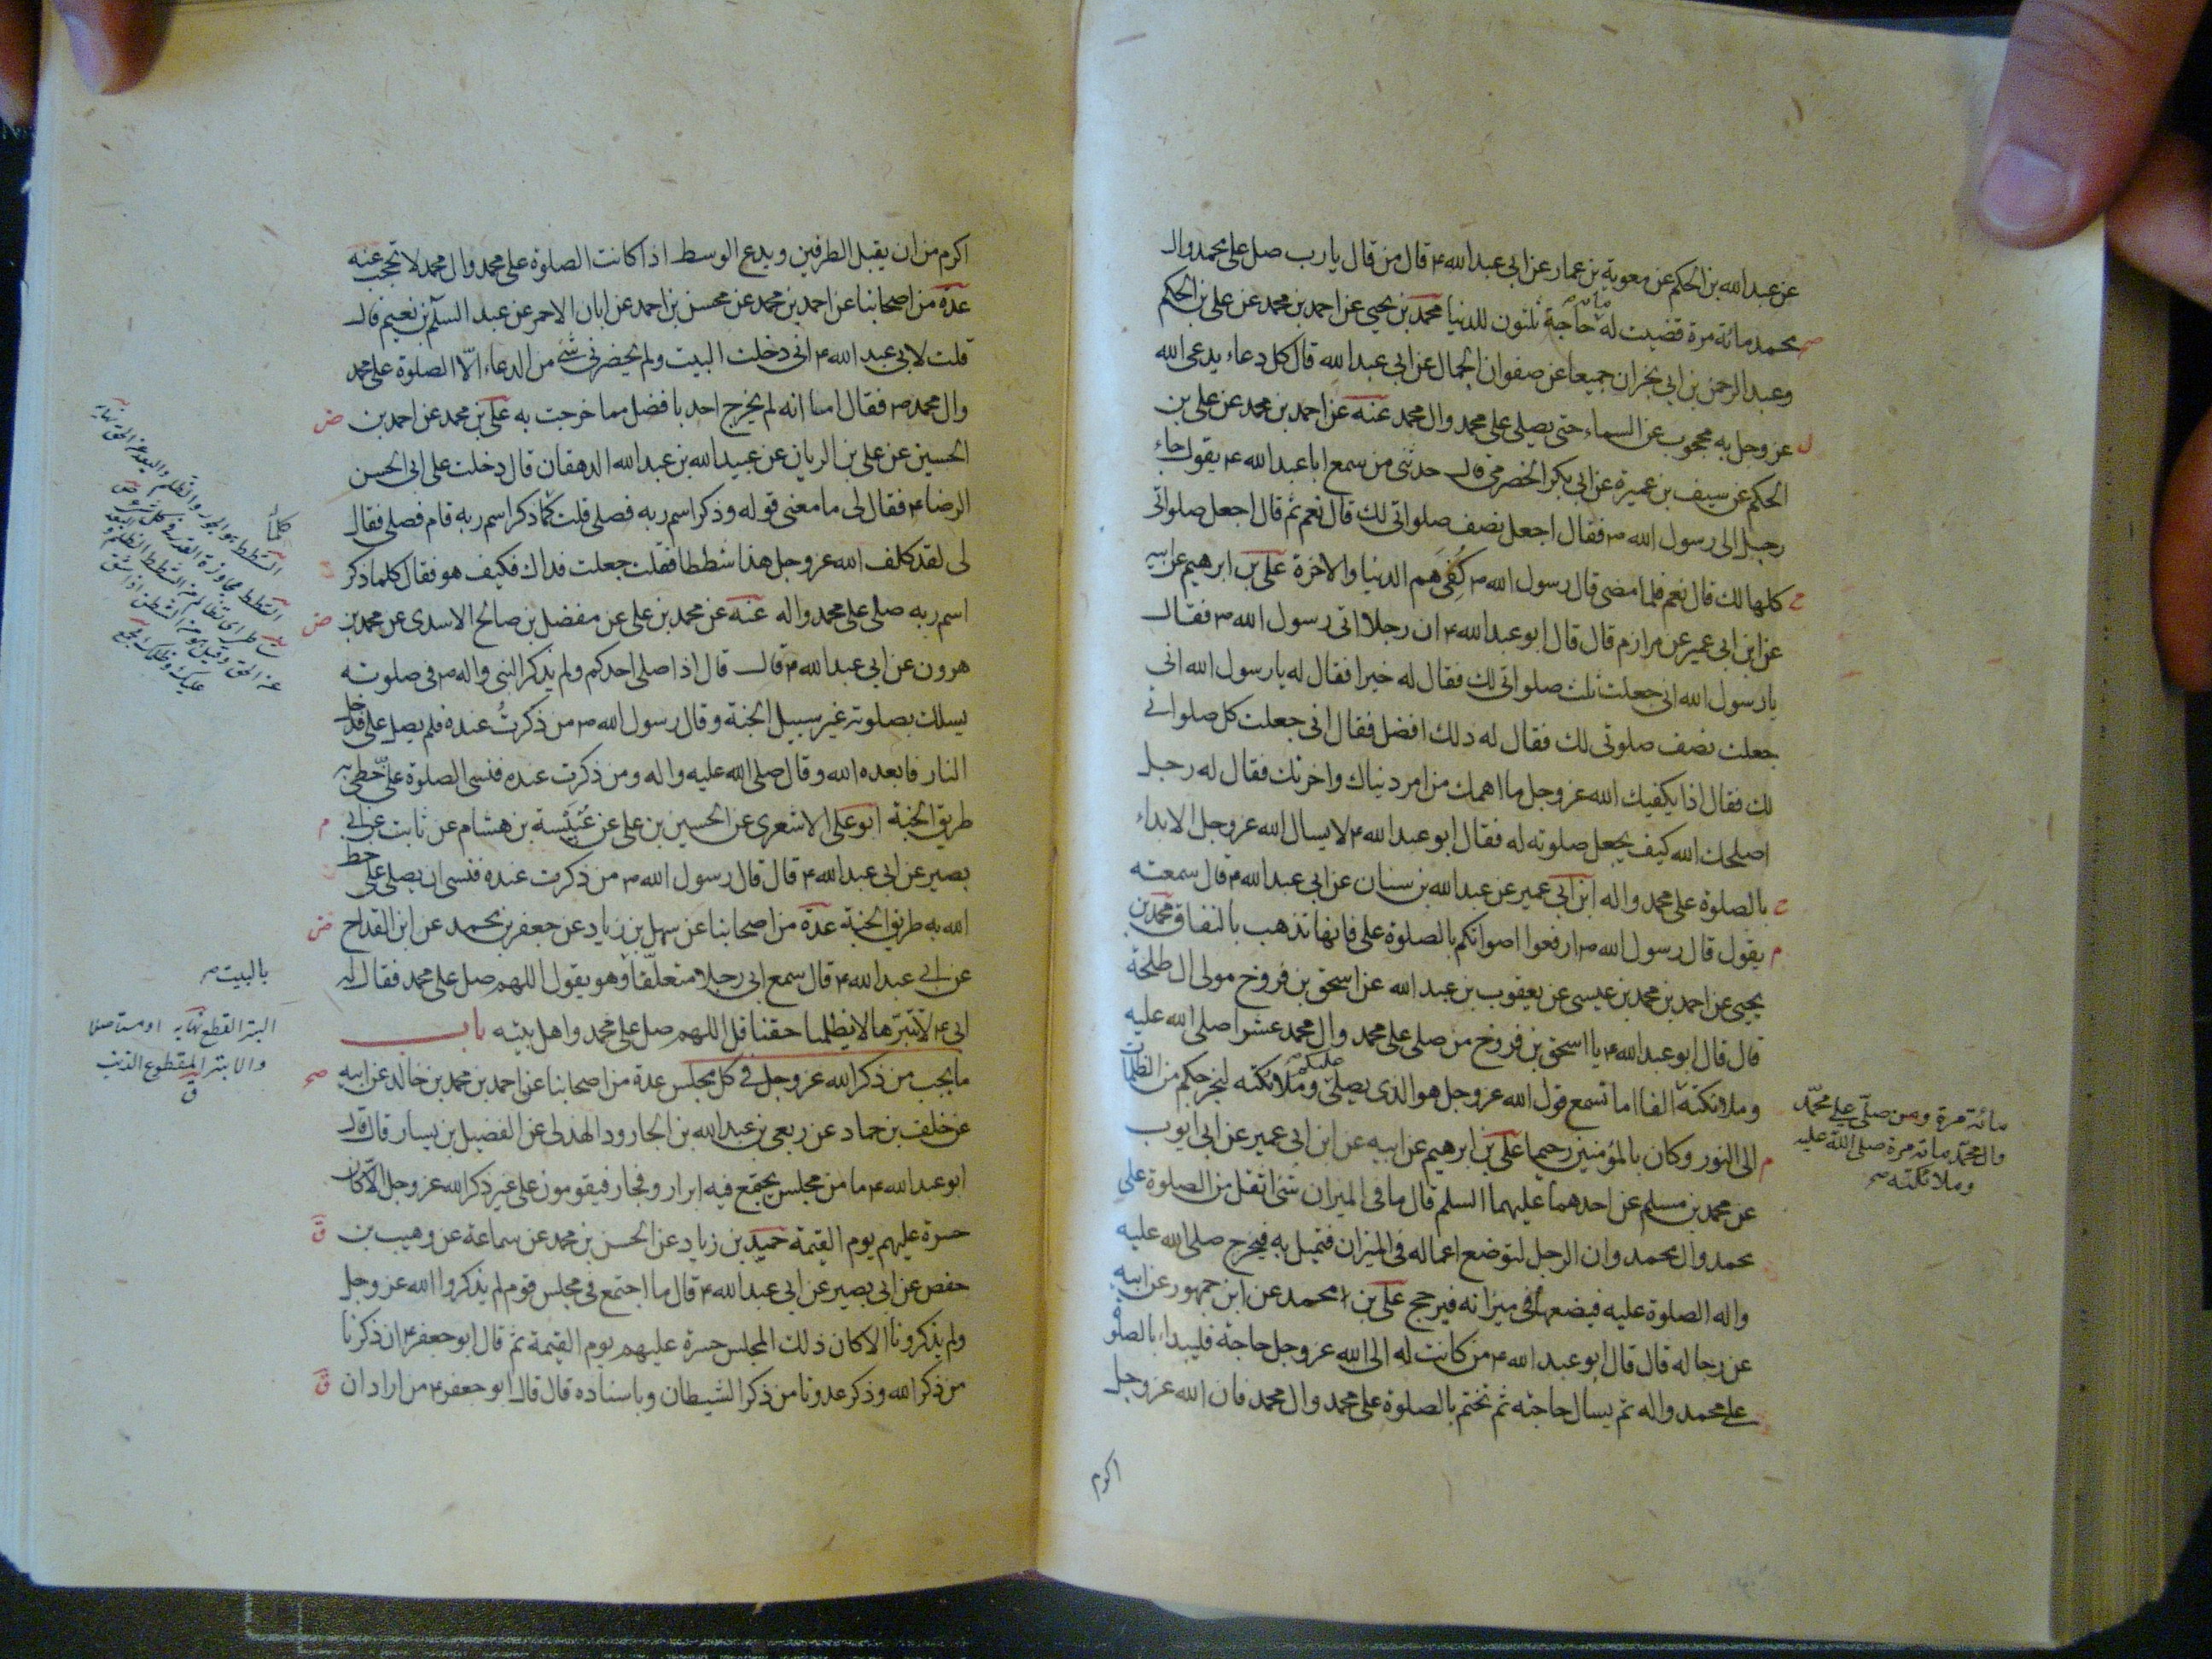 عن عبد الله بن الحكم عن معوية بن عمار عن ابي عبد الله ع قال من قال يا رب صل على محمد وال
محمد مائة مرة قضيت له مائة حاجة ثلثون للدنيا محمد بن يحيى عن احمد بن محمد عن علي بن الحكم
وعبد الرحمن بن ابي نجران جميعا عن صفوان الجمال عن ابي عبد الله قال كل دعاء يدعى الله
عز وجل به محجوب عن السماء حتى يصلي على محمد وال محمد عنه عن احمد بن محمد عن علي بن
الحكم عن سيف بن عميرة عن ابي بكر الحضرمي قال حدثني من سمع ابا عبد الله ع يقول جاء
رجل الى رسول الله ص فقال اجعل نصف صلواتي لك قال نعم ثم قال اجعل صلواتي
كلها لك قال نعم فلما مضى قال رسول الله ص كُفي هَم الدنيا والاخرة علي بن ابرهيم عن ابيه
عن ابن ابي عمير عن مرازم قال قال ابو عبد الله ع ان رجلا اتى رسول الله ص فقال
يا رسول الله اني جعلت ثلث صلواتي لك فقال له خيرا فقال له يا رسول الله اني
جعلت نصف صلوتي لك فقال له ذلك افضل فقال اني جعلت كل صلواتي
لك فقال اذا يكفيك الله عز وجل ما اهمك من امر دنياك واخرتك فقال له رجل
اصلحك الله كيف يجعل صلوته له فقال ابو عبد الله ع لا يسال الله عز وجل الا بداء
بالصلوة على محمد واله ابن ابي عمير عن عبد الله بن سنان عن ابي عبد الله ع قال سمعته
يقول قال رسول الله ص ارفعوا اصواتكم بالصلوة على فانها تذهب بالنفاق محمد بن
يحيى عن احمد بن محمد بن عيسى عن يعقوب بن عبد الله عن اسحق بن فروخ مولى ال طلحة
قال قال ابو عبد الله ع يا اسحق بن فروخ من صلى على محمد وال محمد عشرا صلى الله عليه
وملائكته الفا اما تسمع قول الله عز وجل هو الذي يصلي عليكم وملائكته ليخرجكم من الظلمات
الى النور وكان بالمؤمنين رحيما علي بن ابرهيم عن ابيه عن ابن ابي عمير عن ابي ايوب
عن محمد بن مسلم عن احدهما عليهما السلم قال ما في الميزان شئ اثقل من الصلوة على
محمد وال محمد وان الرجل لتوضع اعماله في الميزان فتميل به فيخرج صلى الله عليه
واله الصلوة عليه فيضعها في ميزانه فيرجح علي بن محمد عن ابن جمهور عن ابيه
عن رجاله قال قال ابو عبد الله ع من كانت له الى الله عز وجل حاجة فليبداء بالصلوة
على محمد واله ثم يسال حاجته ثم تختم بالصلوة على محمد وال محمد فان الله عز وجل
اكرم
مائة مرة ومن صلى على محمد
وال محمد مائة مرة صلى الله عليه
وملائكته
اكرم من ان يقبل الطرفين ويدع الوسط اذا كانت الصلوة على محمد وال محمد لا تحجب عنه
عدة من اصحابنا عن احمد بن محمد عن محسن بن احمد عن ابان الاحمر عن عبد السلم بن نعيم قال
قلت لابي عبد الله ع اني دخلت البيت ولم يحضرني شئ من الدعاء الا الصلوة على محمد
وال محمد ص فقال اما انه لم يخرج احد بافضل مما خرجت به علي بن محمد عن احمد بن
الحسين عن علي بن الريان عن عبيد الله بن عبد الله الدهقان قال دخلت على ابي الحسن
الرضا ع فقال لي ما معنى قوله وذكر اسم ربه فصلى قلت كلما ذكر اسم ربه قام فصلى فقال
لي لقد كلف الله عز وجل هذا شططا فقلت جعلت فداك فكيف هو فقال كلما ذكر
اسم ربه صلى على محمد واله عنه عن محمد بن علي عن مفضل بن صالح الاسدي عن محمد بن
هرون عن ابي عبد الله ع قال قال اذا صلى احدكم ولم يذكر النبي واله ص في صلوته
يسلك بصلوته غير سبيل الجنة وقال رسول الله ص من ذكرتُ عنده فلم يصل علي فدخل
النار فابعده الله وقال صلى الله عليه واله ومن ذكرت عنده فنسى الصلوة عليّ خطئ به
طريق الجنة ابو علي الاشعري عن الحسين بن علي عن عُبَيْسة بن هشام عن ثابت عن ابي
بصير عن ابي عبد الله ع قال قال رسول الله ص من ذكرت عنده فنسى ان يصلي علي خطا
الله به طريق الجنة عدة من اصحابنا عن سهل بن زياد عن جعفر بن محمد عن ابن القداح
عن ابي عبد الله ع قال سمع ابي رجلا متعلقا وهو يقول اللهم صل على محمد فقال له
ابي ع لا تبترها لا يظلمنا حقنا قل اللهم صل على محمد واهل بيته باب
ما يجب من ذكر الله عز وجل في كل مجلس عدة من اصحابنا عن احمد بن محمد بن خالد عن ابيه
عن خلف بن حماد عن ربعي بن عبد الله بن الجارود الهذلي عن الفضيل بن يسار قال قال
ابو عبد الله ع ما من مجلس يجتمع فيه ابرار وفجار فيقومون على غير ذكر الله عز وجل الا كان
حسرة عليهم يوم القيمة حميد بن زياد عن الحسن بن محمد عن سماعة عن وهيب بن
حفص عن ابي بصير عن ابي عبد الله ع قال ما اجتمع في مجلس قوم لم يذكروا الله عز وجل
ولم يذكرونا الا كان ذلك المجلس حسرة عليهم يوم القيمة ثم قال ابو جعفر ع ان ذكرنا
من ذكر الله وذكر عدونا من ذكر الشيطان وباسناده قال قال ابو جعفر ع من اراد ان
كلما
بالبيت
البتر القطع نهاية
والابتر المقطوع الذنب
ق